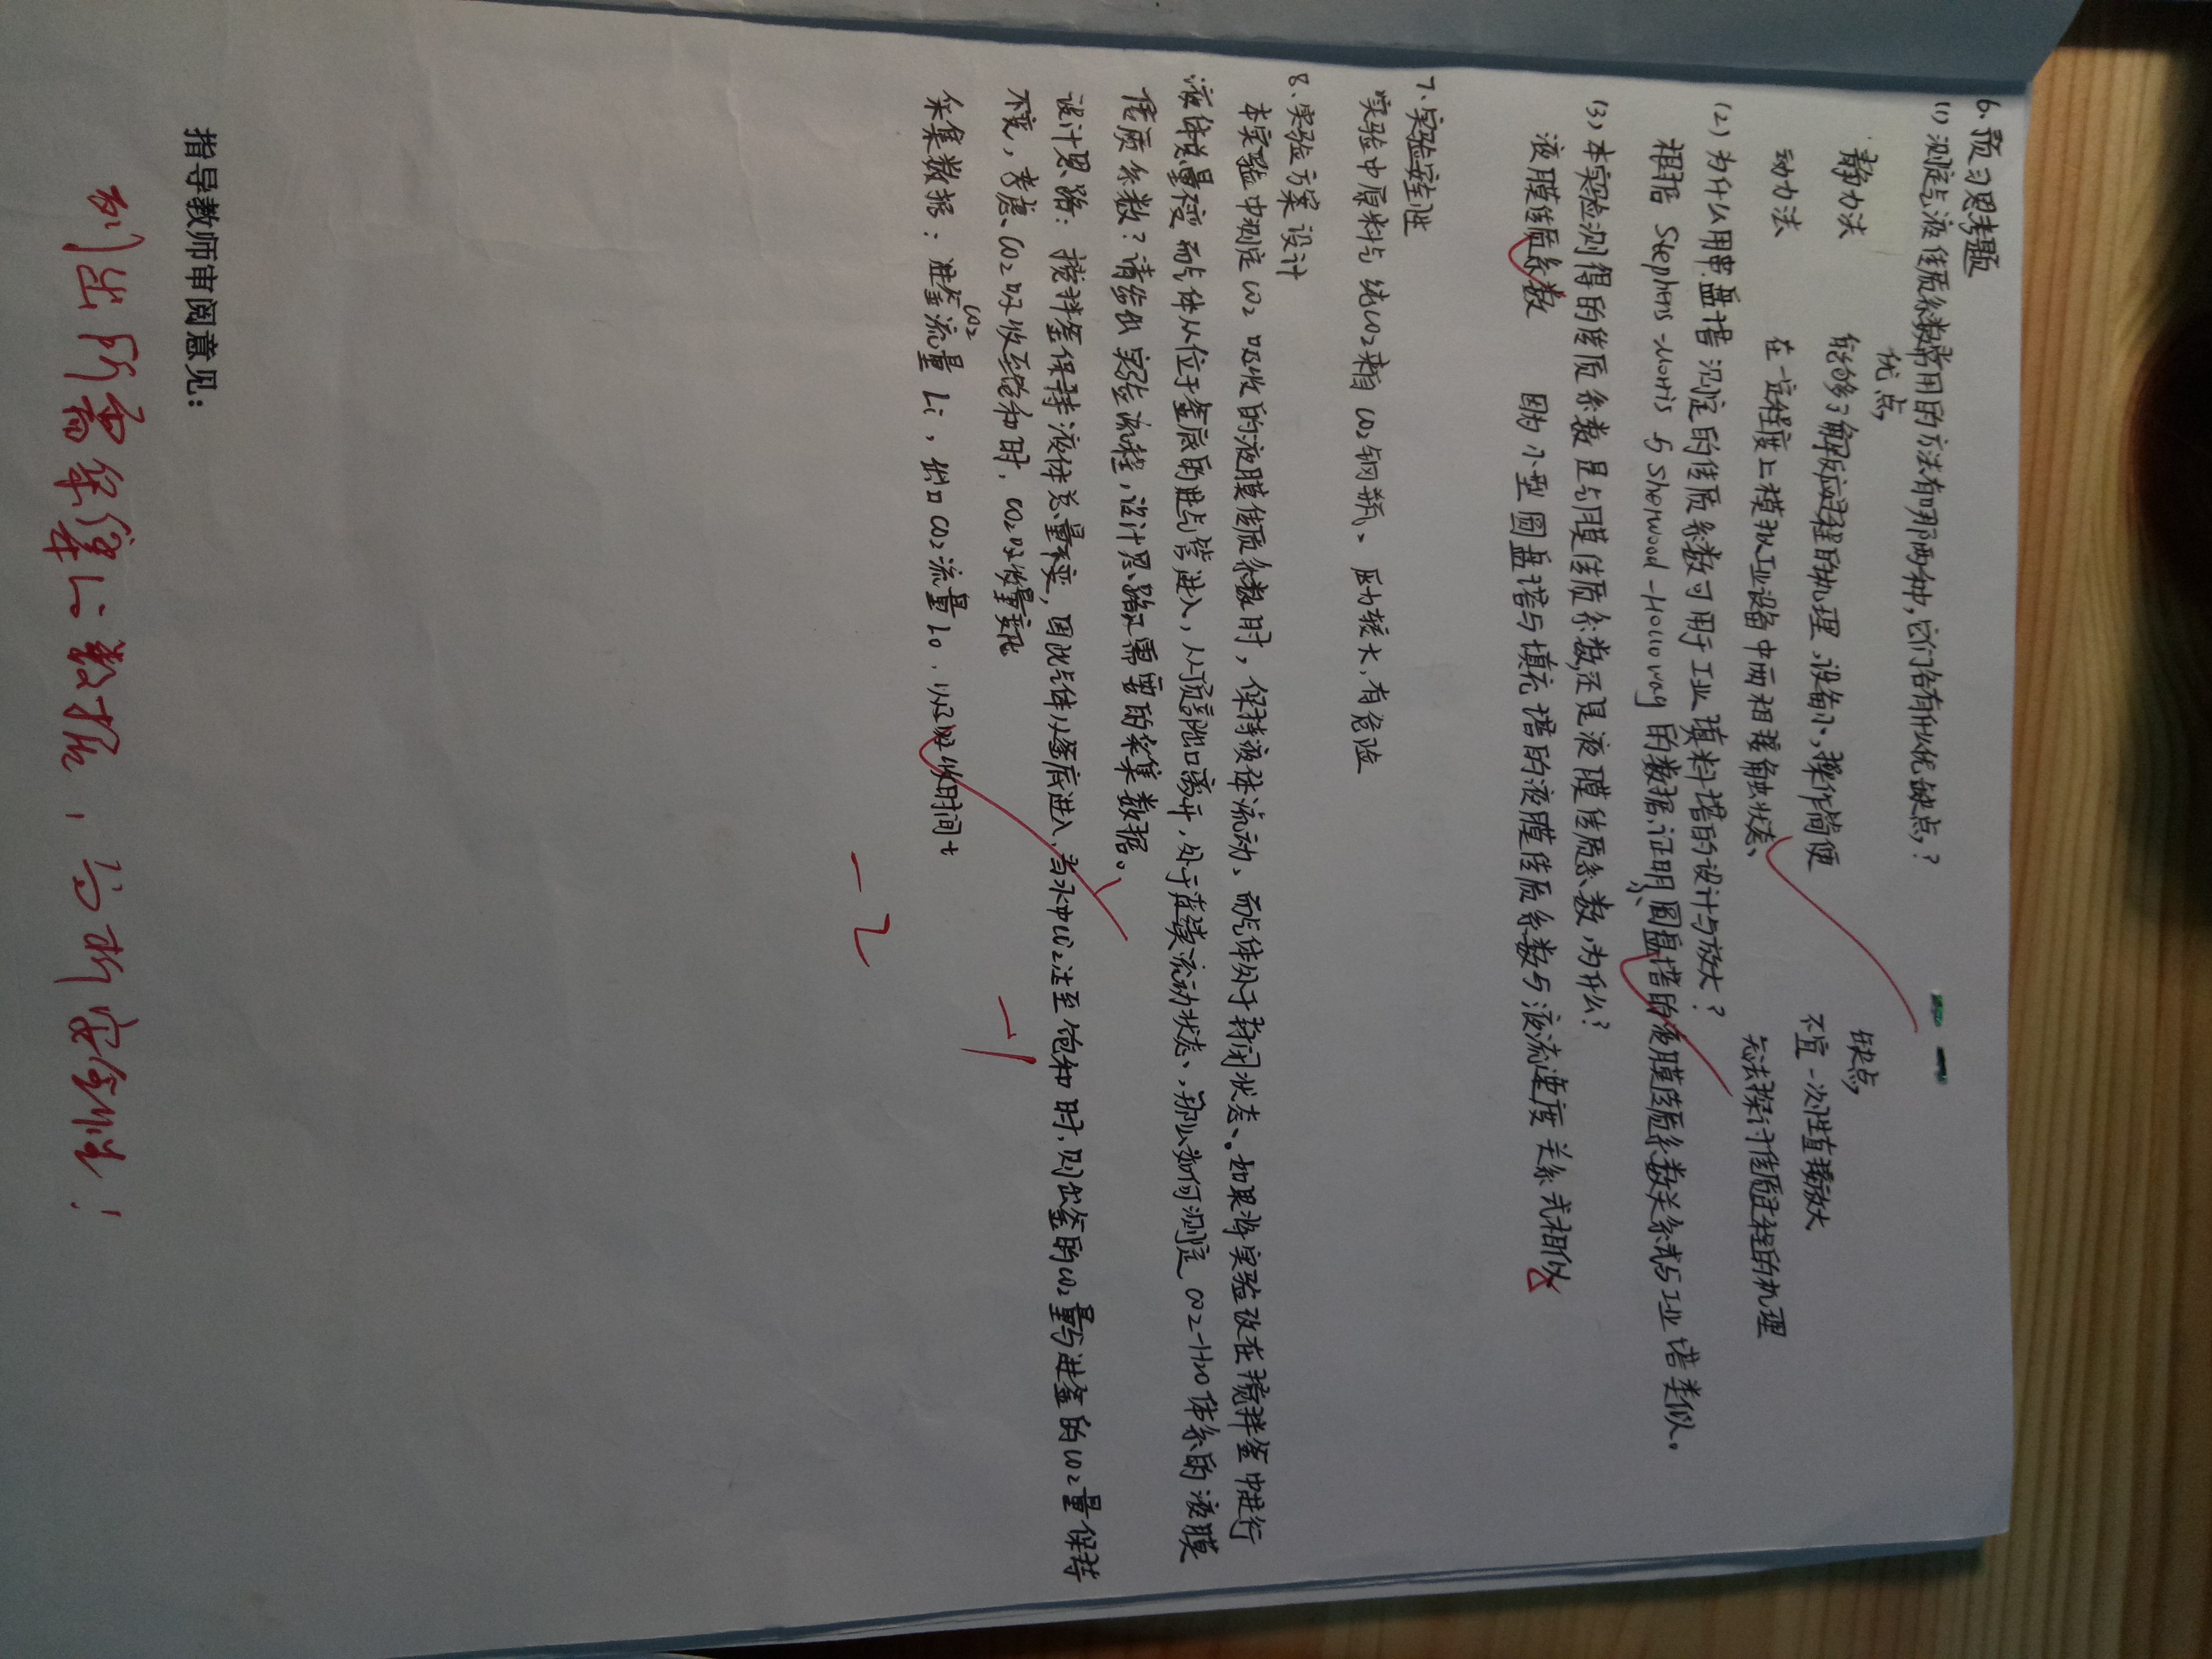 6、预习思考题
(1) 测定气液传质系数常用的方法有哪两种,它们各有什么优缺点?
优点 缺点
静力法 能够了解反应过程的机理,设备小,操作简便 不宜一次性直接放大
动力法 在一定程度上模拟工业设备中两相接触状态 无法探讨传质过程的机理
(2) 为什么用带盘塔测定的传质系数可用于工业填料塔的设计与放大?
根据 Stephens-Morris 与 Sherwood-Holloway 的数据,证明圆盘塔的液膜传质系数关系式与工业塔类似。
(3) 本实验测得的传质系数是气膜传质系数,还是液膜传质系数,为什么?
液膜传质系数 因为小型圆盘塔与填充塔的液膜传质系数与液流速度关系式相似
7、实验安全性
实验中原料气纯CO2来自CO2钢瓶、压力较大,有危险
8、实验方案设计
本实验中测定CO2吸收的液膜传质系数时,保持液体流动、而气体处于封闭状态。如果将实验改在搅拌釜中进行
液体总量不变而气体从位于釜底的进气管进入,从顶部出口离开,处于连续流动状态,那么如何测定CO2-H2O体系的液膜
传质系数?请给出实验流程,设计思路及需要的采集数据。
设计思路:搅拌釜保持液体总量不变,因此气体从釜底进入,当水中CO2达至饱和时,则出釜的CO2量与进釜的CO2量保持
不变,考虑CO2吸收至饱和时,CO2吸收量变化
采集数据:进釜CO2流量Li,出口CO2流量Lo,以及吸收时间t
-1
-2
指导教师审阅意见:
列出所需采集的数据,分析安全性!